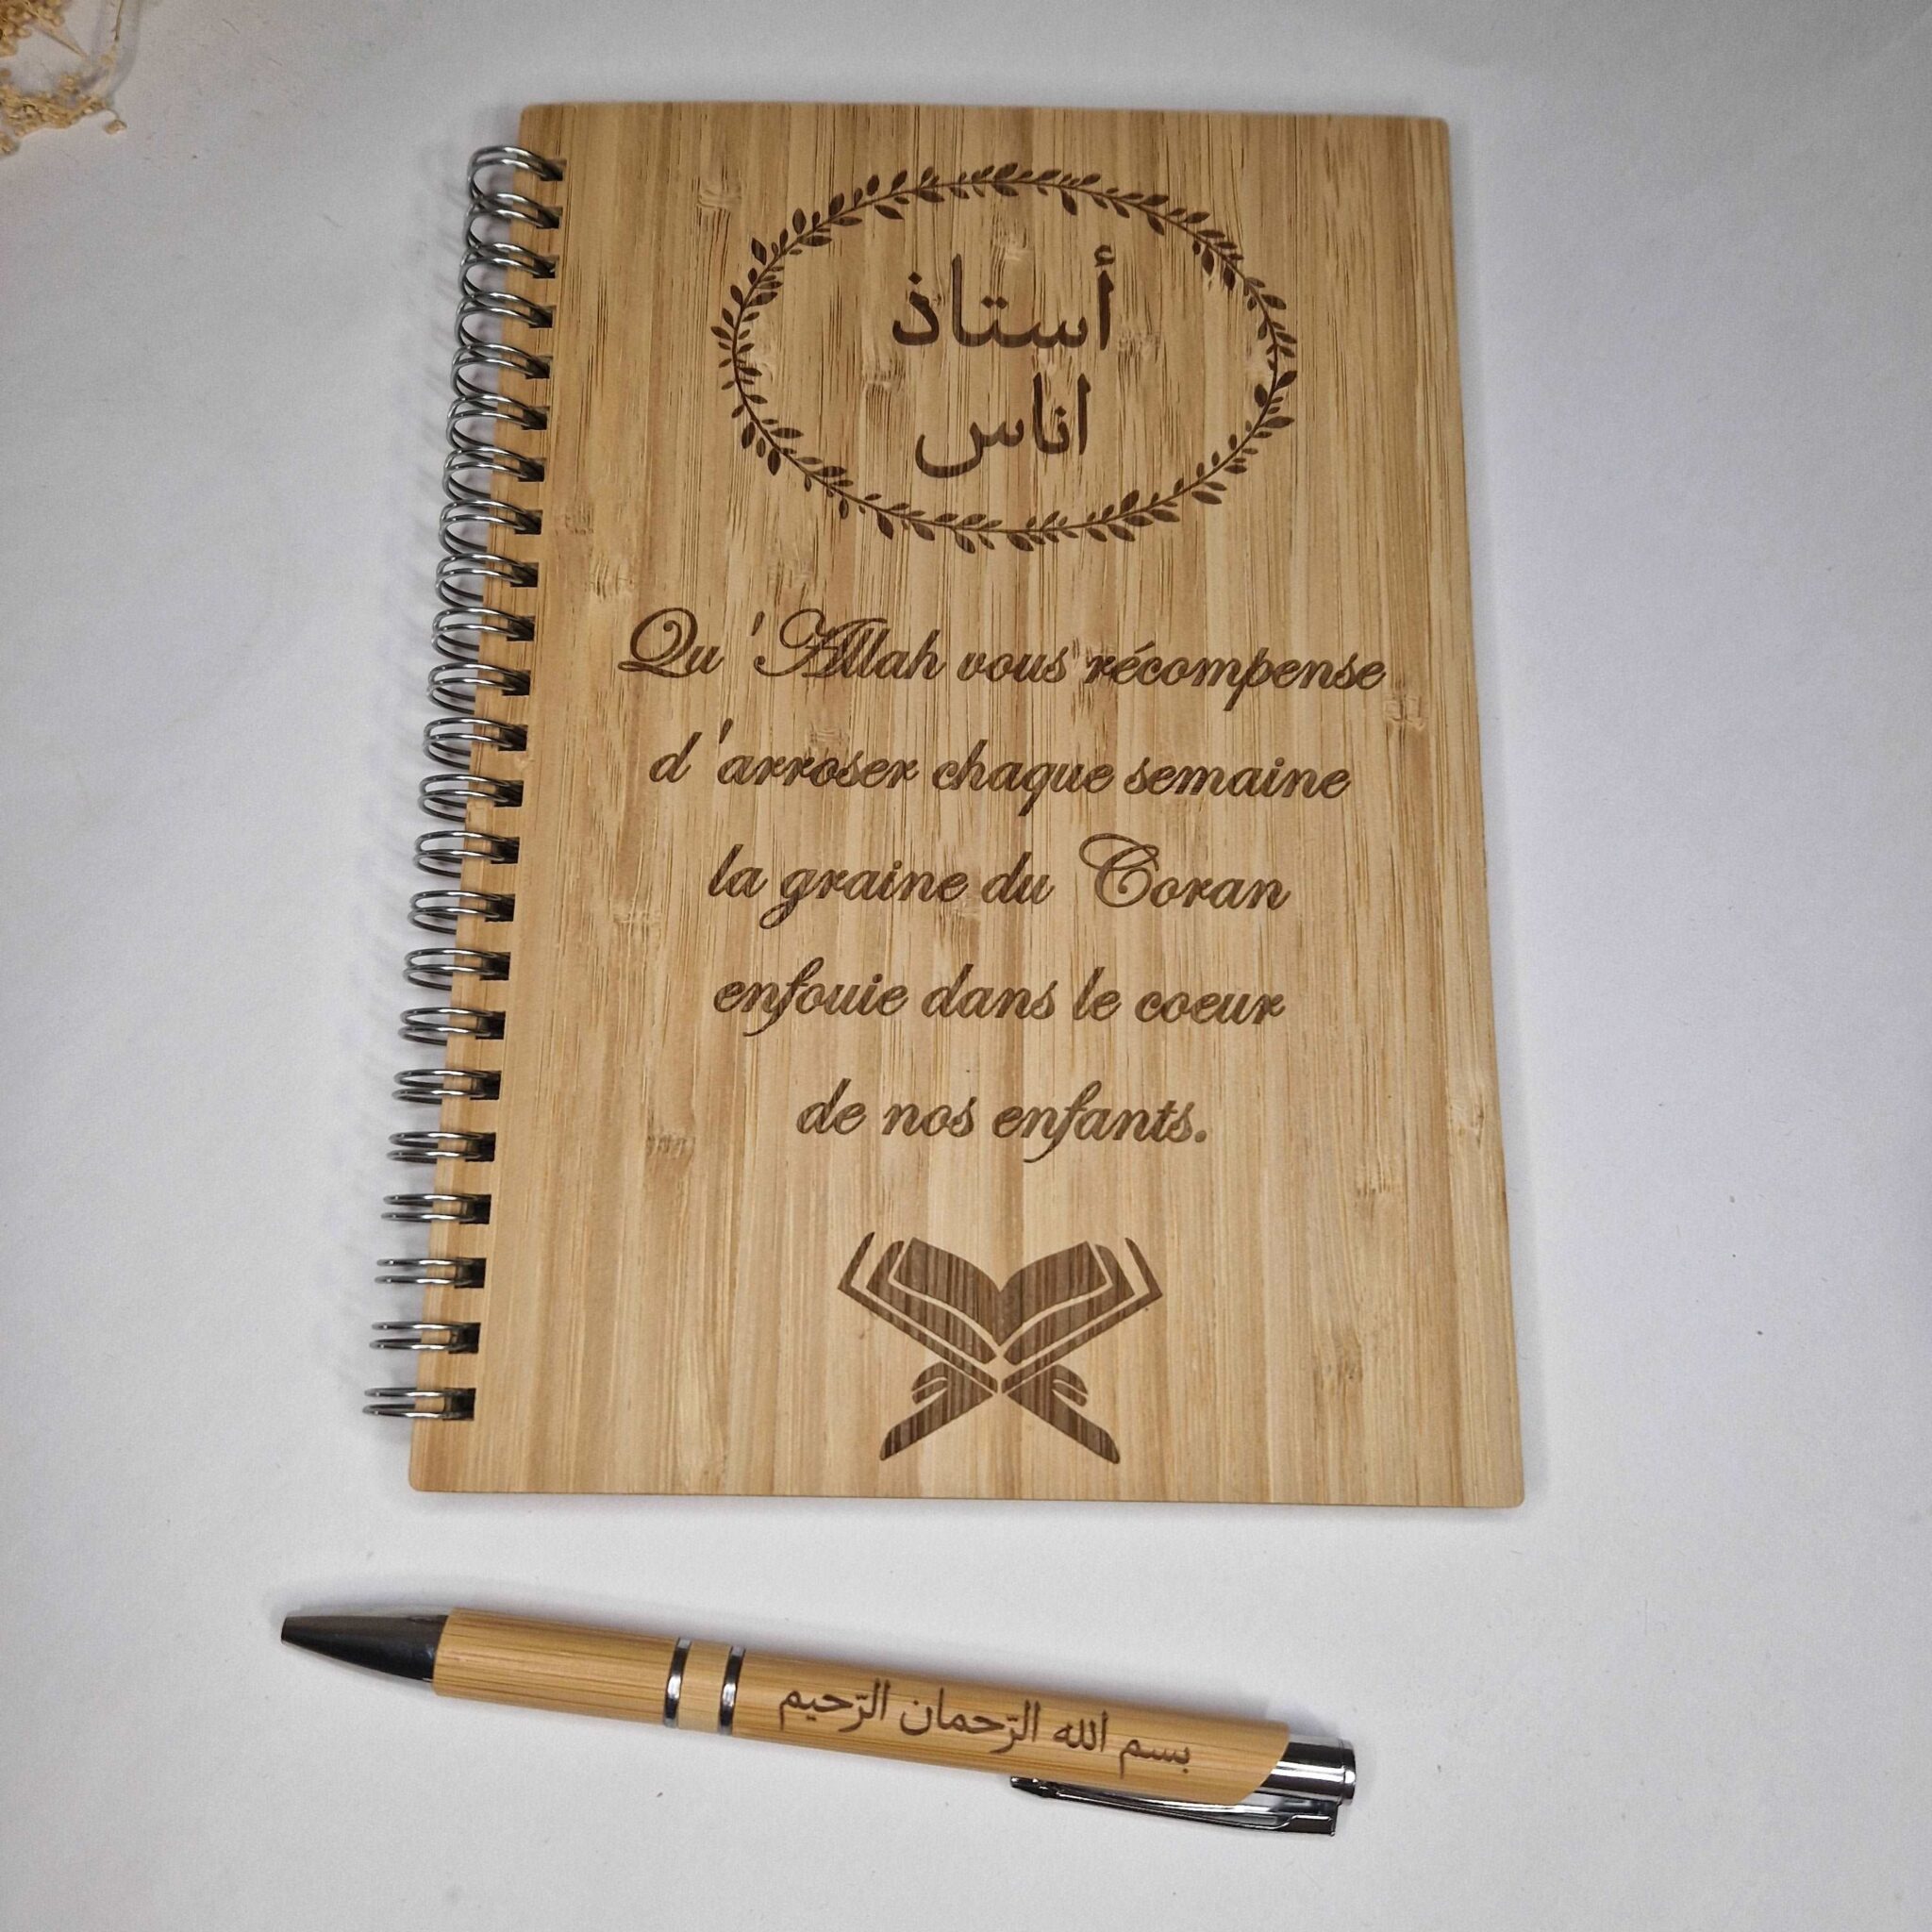 أستاذ
اناس
Qu'Allah vous récompense
d'arroser chaque semaine
la graine du Coran
enfouie dans le coeur
de nos enfants.
بسم الله الرّحمان الرّحيم